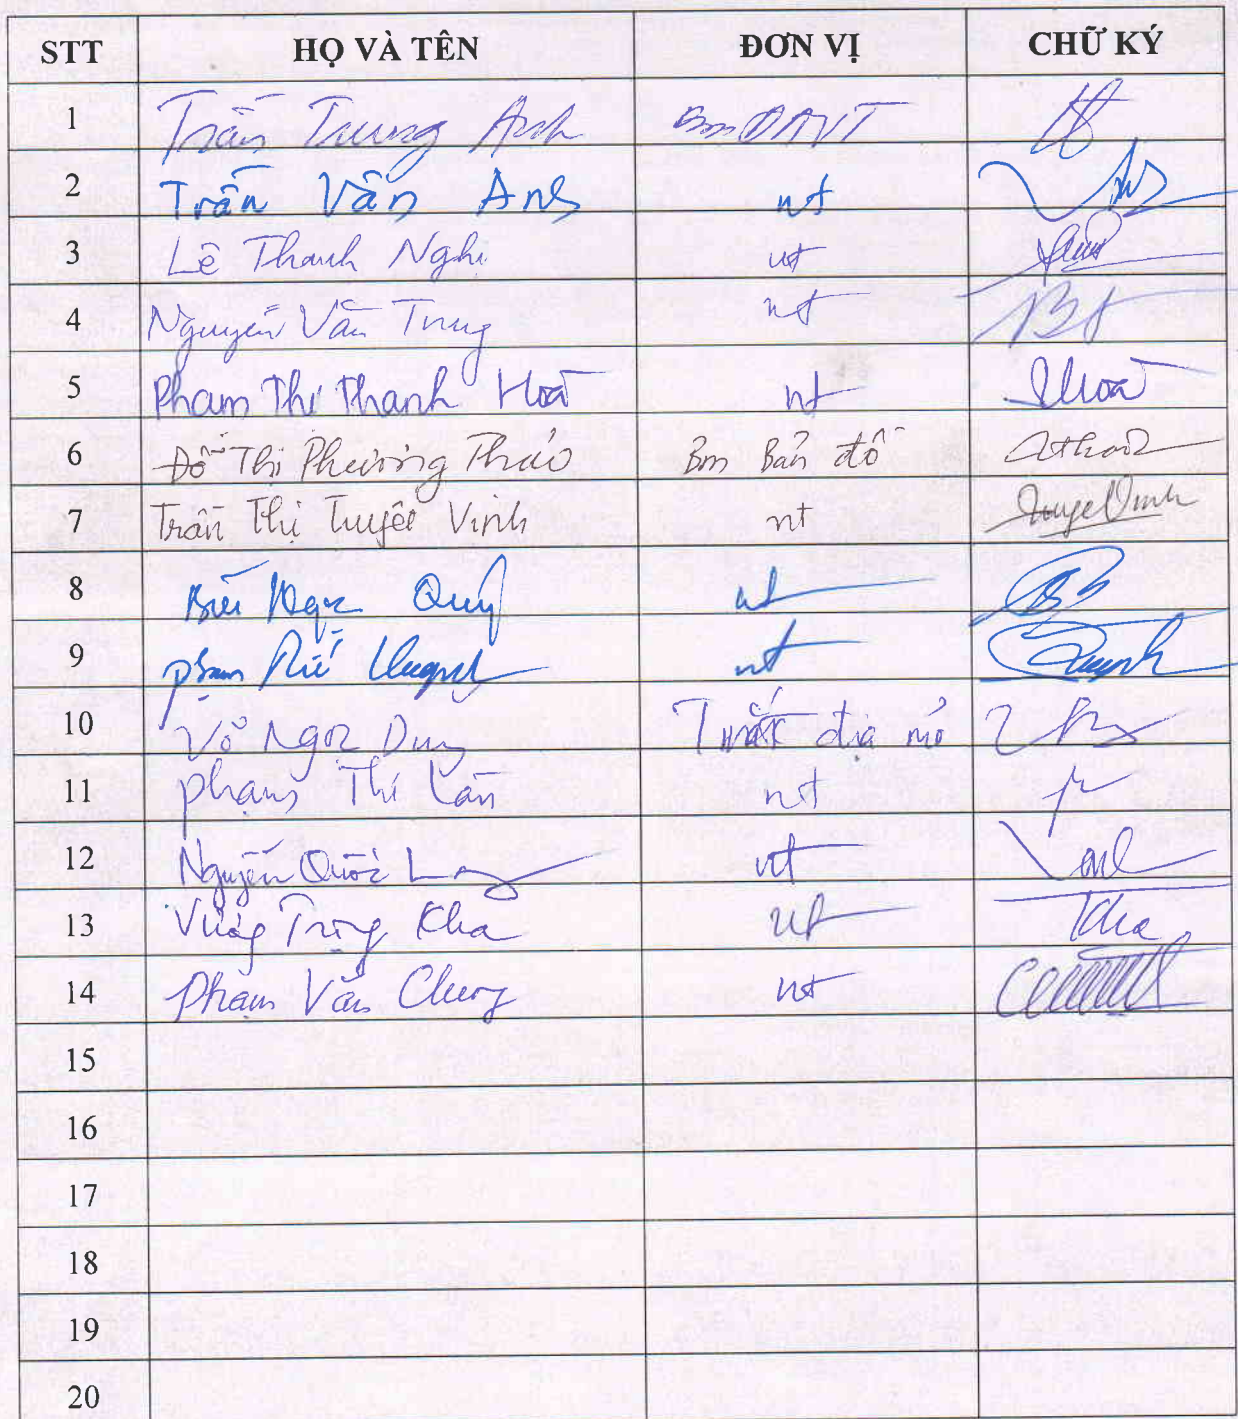 STT HỌ VÀ TÊN ĐƠN VỊ CHỮ KÝ
1 Trần Trung Anh Bm ĐAVT
2 Trần Vân Anh nt
3 Lê Thanh Nghị nt
4 Nguyễn Văn Trung nt
5 Phạm Thị Thanh Hoà nt Hoà
6 Đỗ Thị Phương Thảo Bm Bản đồ
7 Trần Thị Tuyết Vinh nt TuyetVinh
8 Bùi Ngọc Quý nt
9 Phạm Thế Huynh nt Huynh
10 Võ Ngọc Dũng Trắc địa mỏ
11 Phạm Thị Làn nt
12 Nguyễn Quốc Long nt
13 Vương Trọng Kha nt Kha
14 Phạm Văn Chung nt
15
16
17
18
19
20